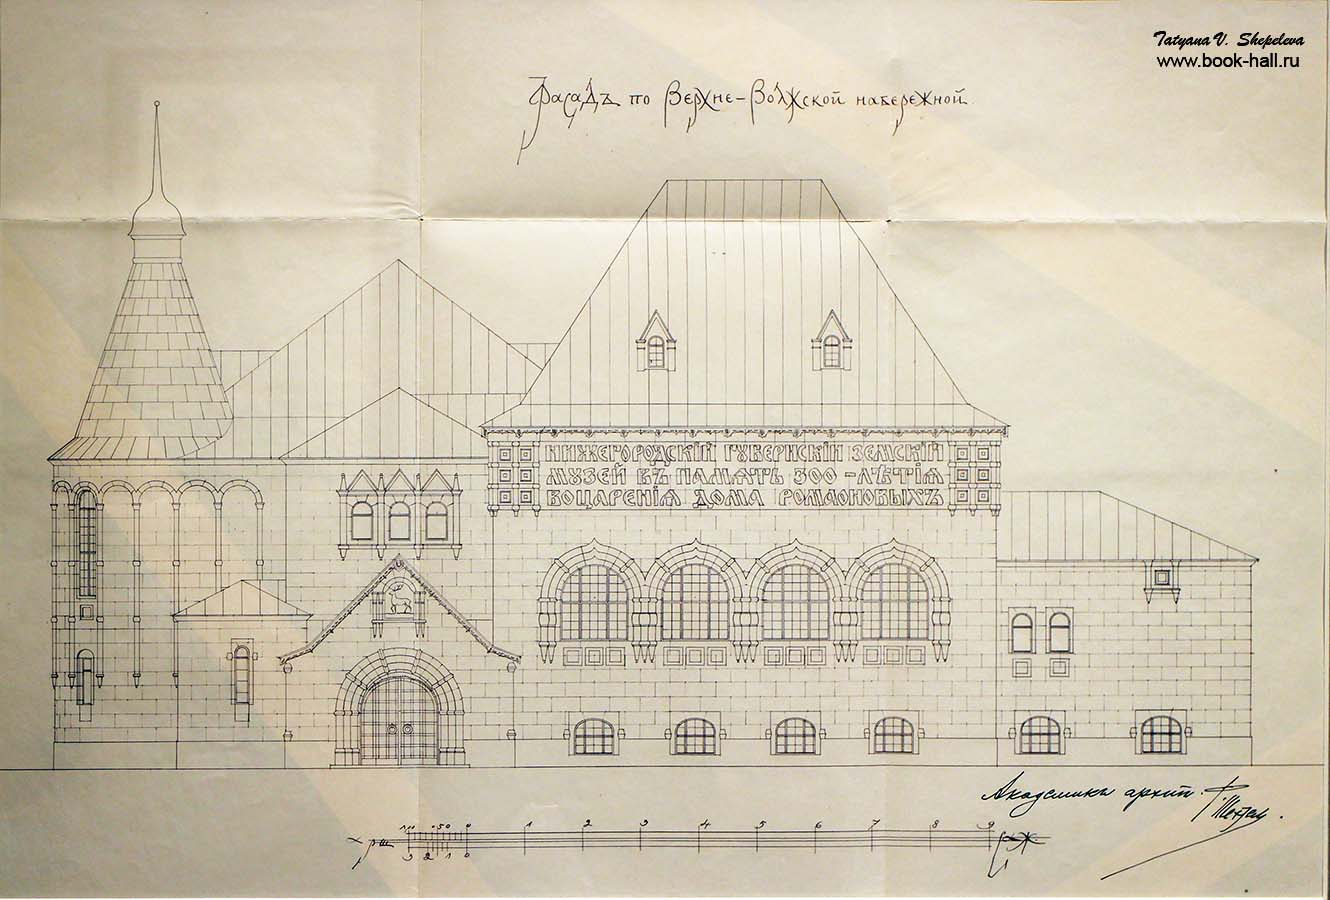 Tatyana V. Shepeleva
www.book-hall.ru
Фасадъ по Верхне-Волжской набережной.
НИЖЕГОРОДСКІЙ ГУБЕРНСКІЙ ЗЕМСКІЙ
МУЗЕЙ ВЪ ПАМЯТЬ 300-ЛѢТІЯ
ВОЦАРЕНІЯ ДОМА РОМАНОВЫХЪ
Академикъ архит.
100 50 0 1 2 3 4 5 6 7 8 9
3 2 1 0